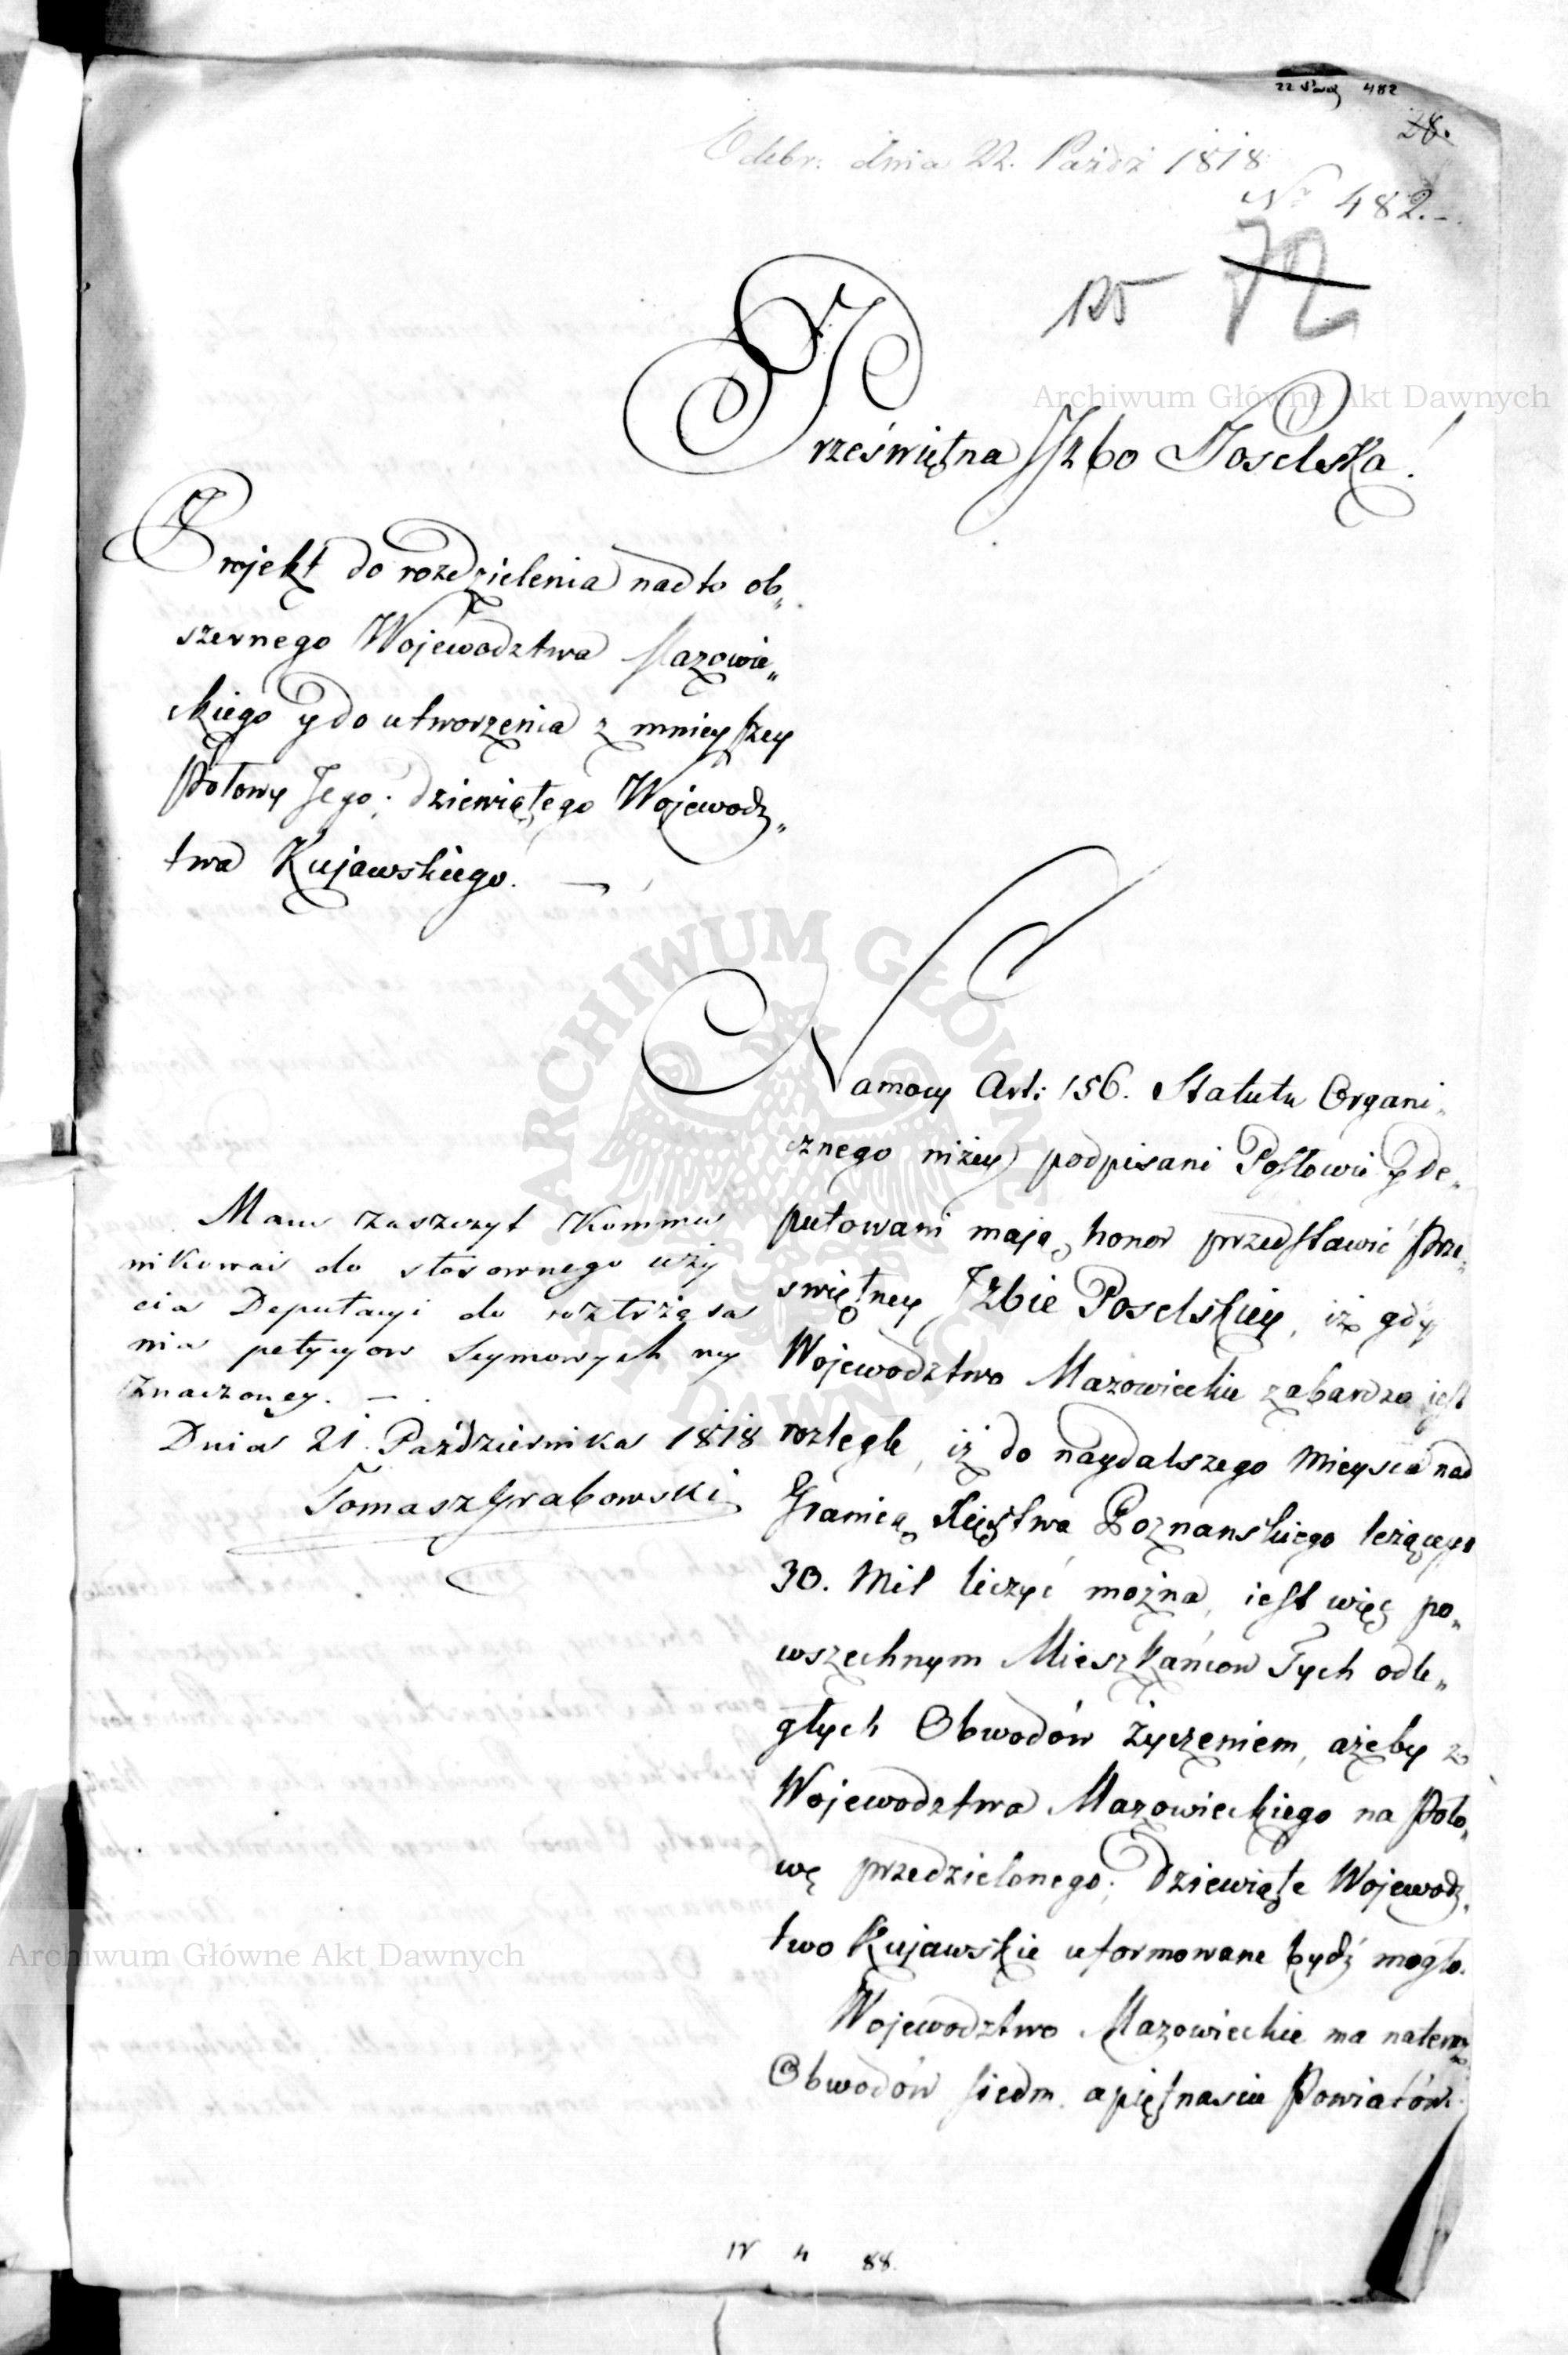 22 Paźdz 482
28.
Odebr: dnia 22. Paźdź 1818
Nr 482.-
125 72
Archiwum Główne Akt Dawnych
Przeświętna Jzbo Poselska!
Projekt do rozdzielenia nadto ob„
szernego Województwa Mazowie„
ckiego y do utworzenia z mnieyszey
Połowy Jego; dziewiątego Wojewodz„
twa Kujawskiego. —
ARCHIWUM GŁÓWNE AKT DAWNYCH
Namocy Art: 156. Statutu Organi„
cznego niżey podpisani Posłowie y De„
putowani mają honor przedstawić Prze„
świętney Jzbie Poselskiey, iż gdy
Wojewodztwo Mazowieckie zabardzo jest
rozległe, iż do naydalszego Mieysca nad
Granicą Xięstwa Poznanskiego leżącego
30. Mil liczyć można, iest więc po„
wszechnym Mieszkańcow Tych odle„
głych Obwodów życzeniem, ażeby z
Wojewodztwa Mazowieckiego na Poło„
wę przedzielonego; Dziewiąte Wojewodz„
two Kujawskie uformowane bydź mogło.
Wojewodztwo Mazowieckie ma nateraz
Obwodów siedm, a piętnaście Powiatów.
Mam zaszczyt Kommu
nikować do stosownego uży
cia Deputacyi do roztrząsa
nia petycyow Seymowych wy
znaczoney. —
Dnia 21. Października 1818
Tomasz Grabowski
Archiwum Główne Akt Dawnych
IV 4 88.